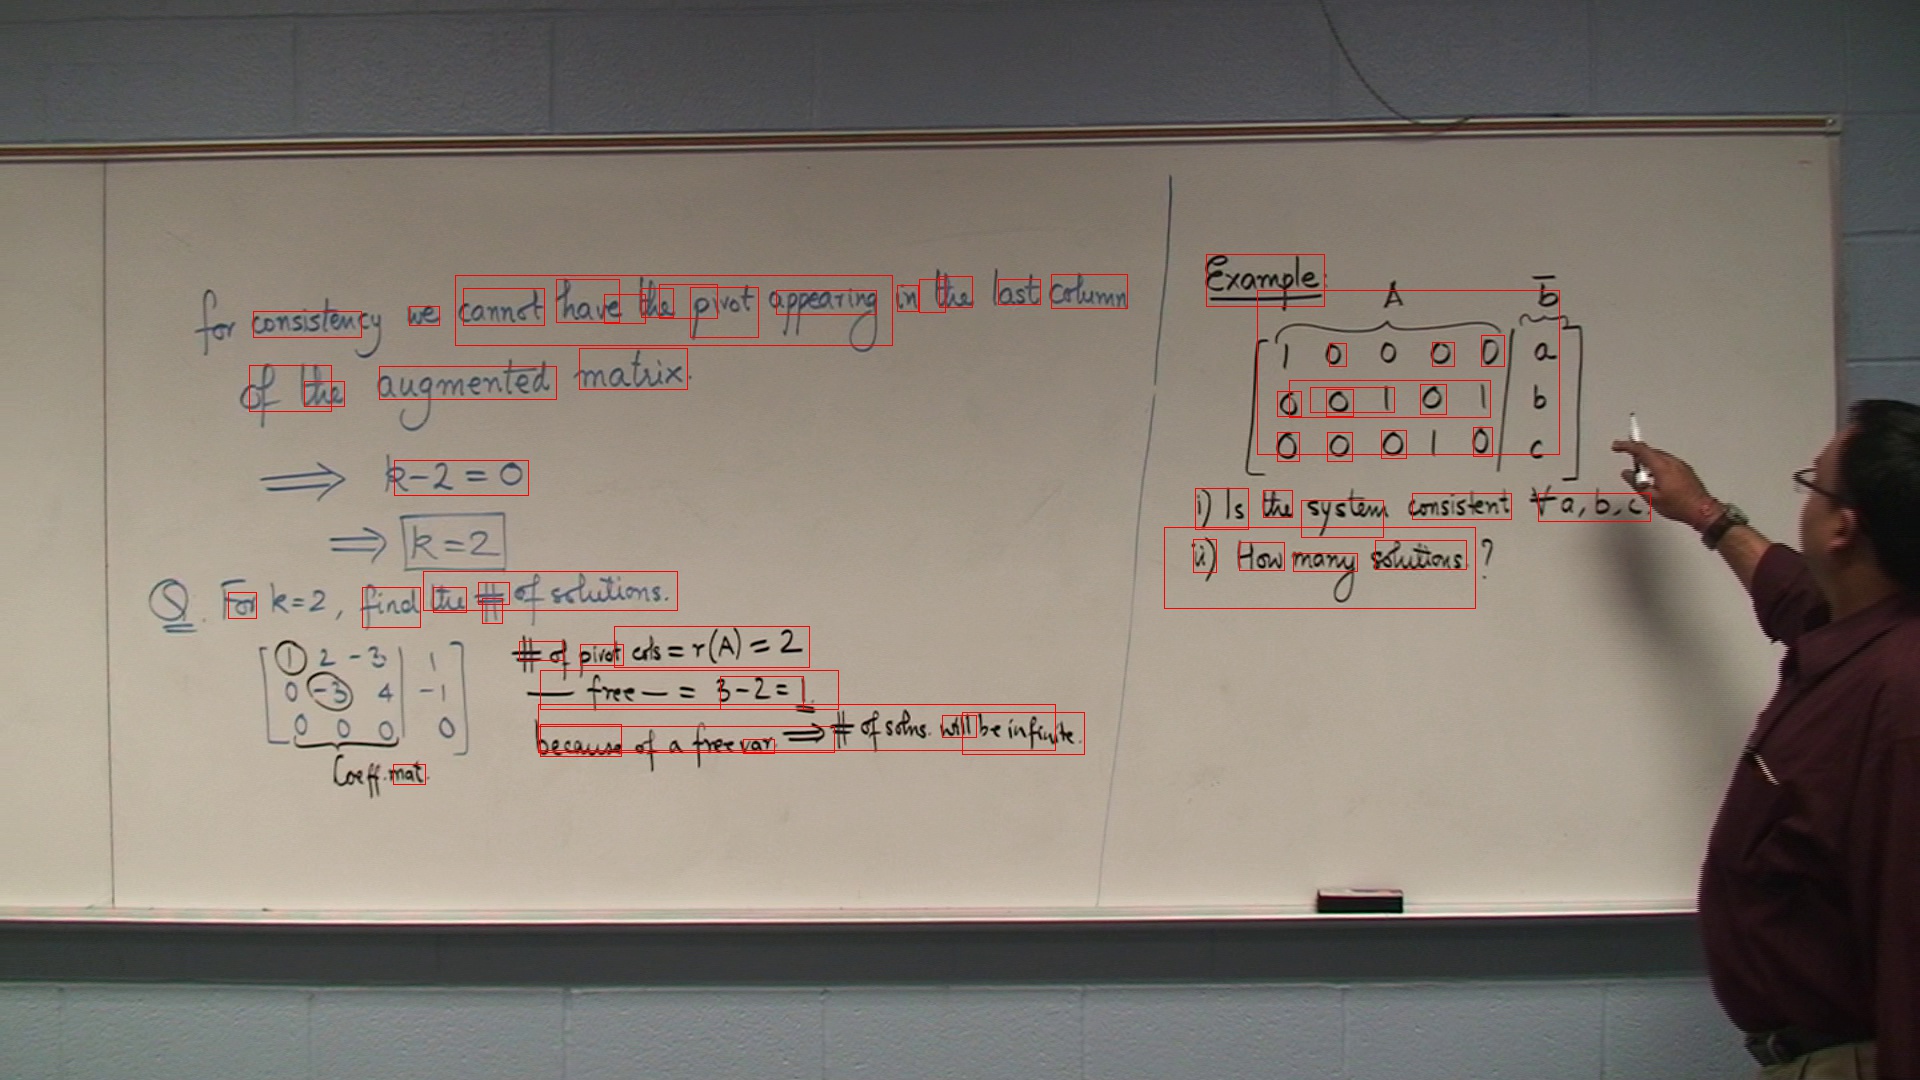 for consistency we cannot have the pivot appearing in the last column
of the augmented matrix.
⟹ k-2 = 0
⟹ k=2
Q. For k=2, find the # of solutions.
[ 1 2 -3 | 1 ]
[ 0 -3 4 | -1 ]
[ 0 0 0 | 0 ]
Coeff. mat.
# of pivot cols = r(A) = 2
— free — = 3-2 = 1.
because of a free var. ⟹ # of solns. will be infinite.
Example:
A b̄
[ 1 0 0 0 0 | a ]
[ 0 0 1 0 1 | b ]
[ 0 0 0 1 0 | c ]
i) Is the system consistent ∀ a, b, c.
ii) How many solutions ?